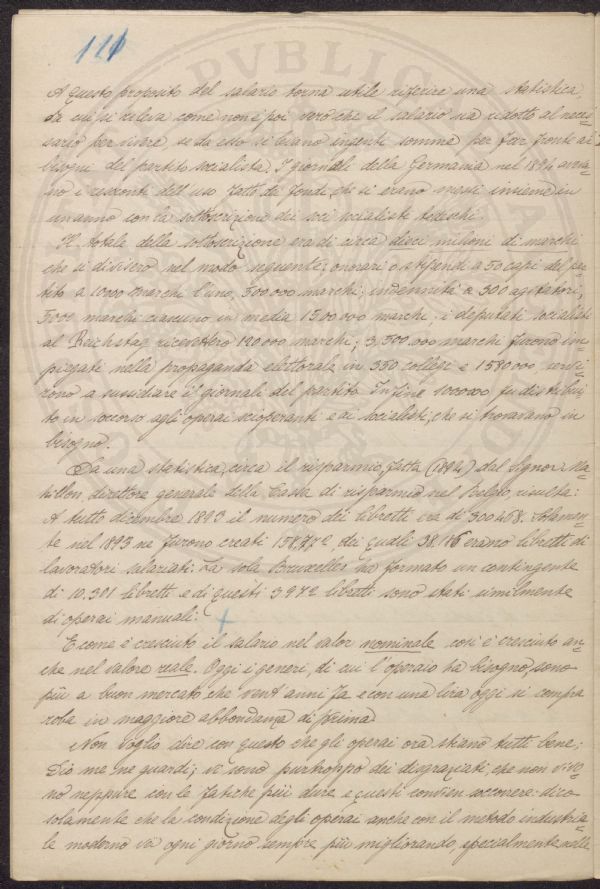 111
A questo proposito del salario torna utile riferire una statistica,
da cui si rileva come non è poi vero che il salario sia ridotto al neces-
sario per vivere, se da esso si levano ingenti somme per far fronte ai
bisogni del partito socialista. I giornali della Germania nel 1894 aveva-
no i resconti dell'uso fatto dei fondi, che si erano messi insieme in
un anno con la sottoscrizione dei soci socialisti tedeschi.
Il totale della sottoscrizione era di circa dieci milioni di marchi
che si divisero nel modo seguente: onorari o stipendi a 50 capi del par-
tito a 10000 marchi l'uno, 500000 marchi; indennità a 300 agitatori,
5000 marchi ciascuno in media 1500000 marchi; i deputati socialisti
al Reichstag ricevettero 120000 marchi; 3,500.000 marchi furono im-
piegati nella propaganda elettorale in 350 collegi e 1580000 servi-
rono a sussidiare il giornali del partito. Infine 100000 fu distribui-
to in soccorso agli operai scioperanti e ai socialisti, che si trovavano in
bisogno.
Da una statistica, circa il risparmio, fatta (1894) dal Signor Ma-
hillon direttore generale della Cassa di risparmio nel Belgio, risulta:
A tutto dicembre 1893 il numero dei libretti era di 300468. Solamen-
te nel 1893 ne furono creati 158,472, dei quali 38,116 erano libretti di
lavoratori salariati. La sola Bruxelles ha formato un contingente
di 10.301 libretti e di questi 3972 libretti sono stati similmente
di operai manuali. +
E come è cresciuto il salario nel valor nominale così è cresciuto an-
che nel valore reale. Oggi i generi, di cui l'operaio ha bisogno, sono
più a buon mercato che vent'anni fa e con una lira oggi si compra
roba in maggiore abbondanza di prima.
Non voglio dire con questo che gli operai ora stiano tutti bene;
Dio me ne guardi; vi sono purtroppo dei disgraziati, che non vivo-
no neppure con le fatiche più dure e questi convien soccorrere: dico
solamente che la condizione degli operai anche con il metodo industria-
le moderno va ogni giorno sempre più migliorando, specialmente nelle